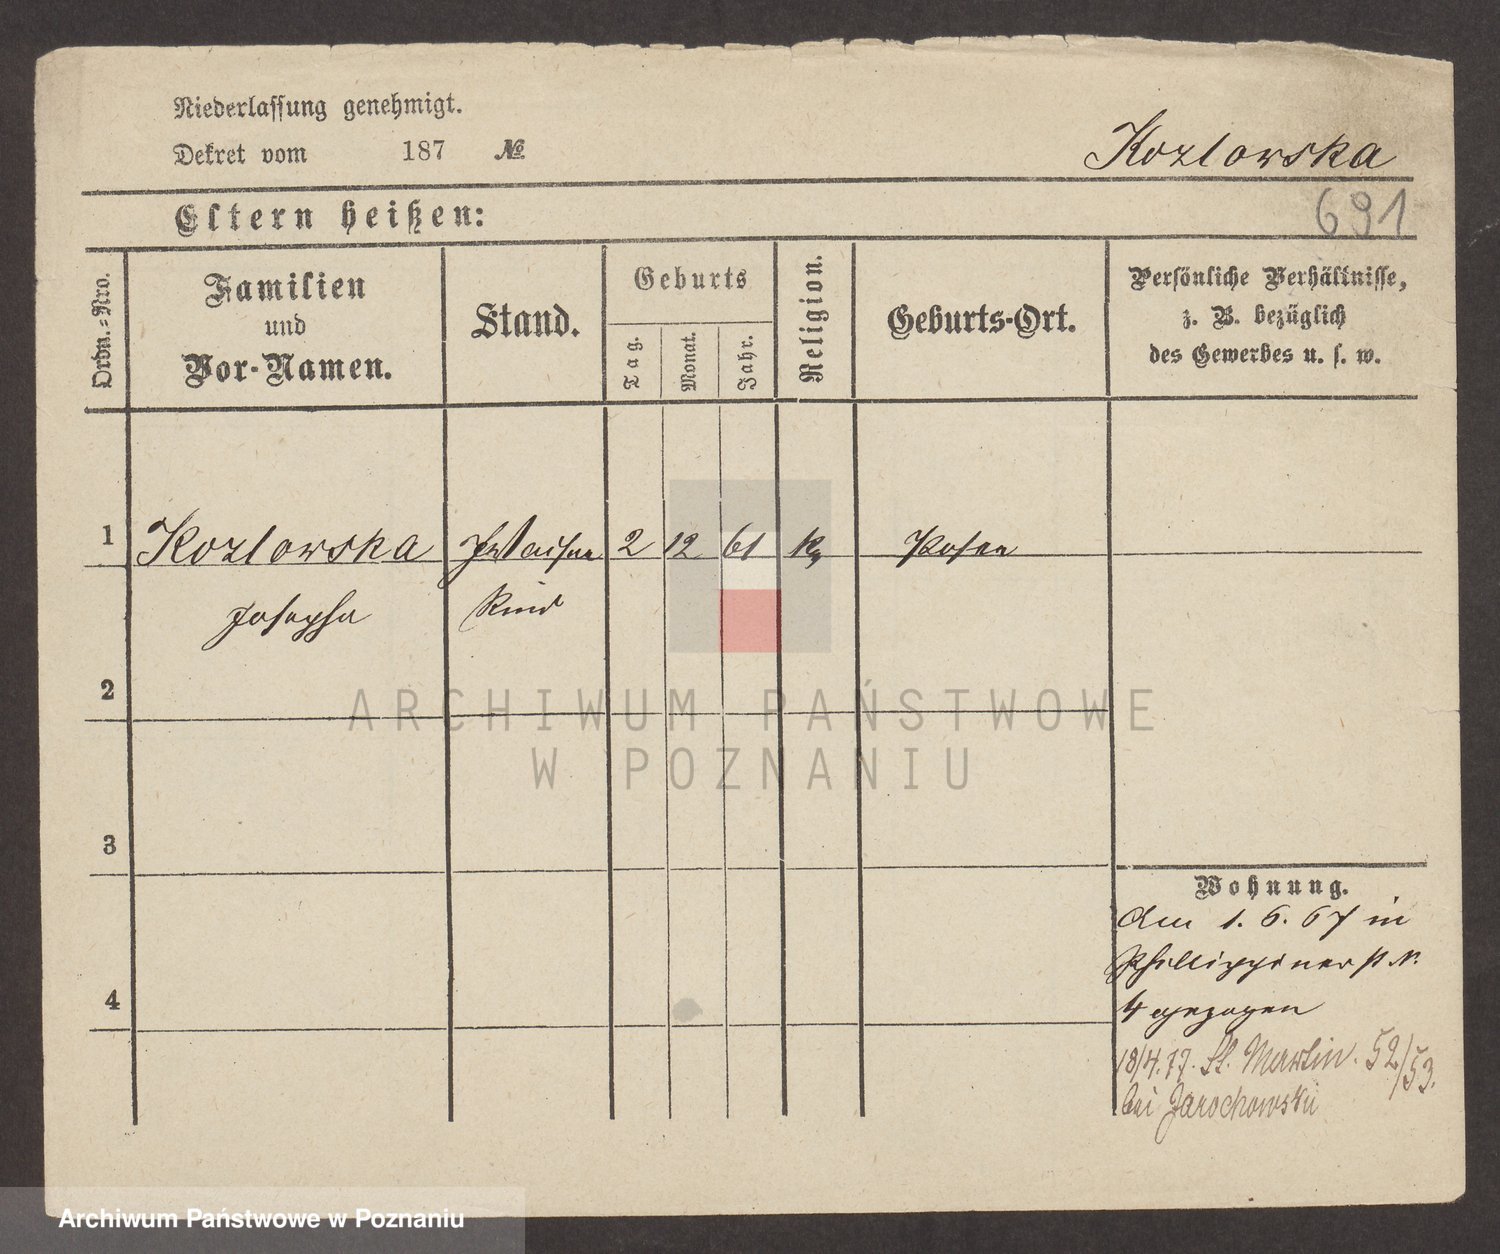 Niederlassung genehmigt.
Dekret vom 187 №
Kozlowska
Eltern heißen:
691
Ordn.-Nro.
Familien
und
Vor-Namen.
Stand.
Geburts
Tag.
Monat.
Jahr.
Religion.
Geburts-Ort.
Persönliche Verhältnisse,
z. B. bezüglich
des Gewerbes u. s. w.
1 Kozlowska Waisen 2 12 61 Posen
Josepha Kind
2
ARCHIWUM PAŃSTWOWE
W POZNANIU
3
Wohnung.
Am 1. 6. 67 in
Phillippiner st N.
4 gezogen
4
18/4. 77. St. Martin. 52/53.
bei Jarochowski
Archiwum Państwowe w Poznaniu